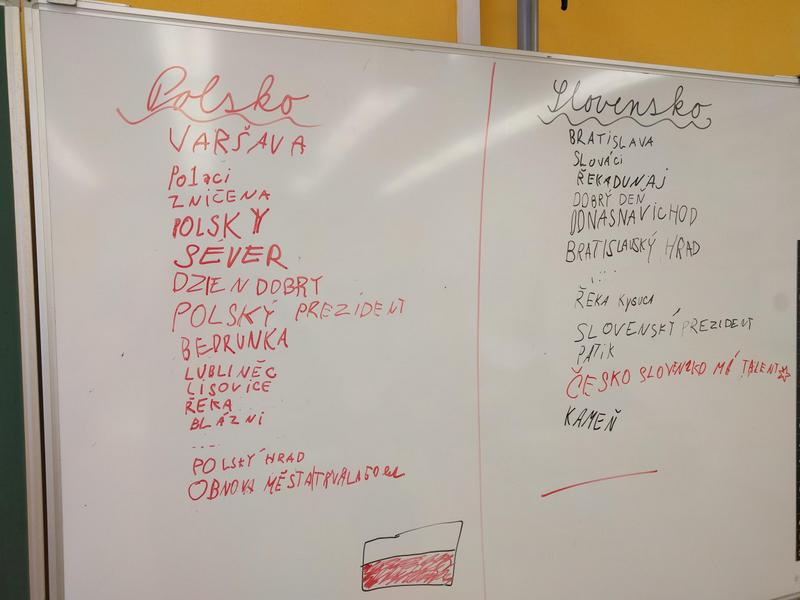 Polsko
VARŠAVA
Poláci
ZNIČENA
POLSKÝ
SÉVER
DZIEN DOBRY
POLSKÝ PREZIDENT
BEDRUNKA
LUBLINĚC
LISOVICE
ŘEKA
BLÁZNI
....
POLSKÝ HRAD
OBNOVA MĚSTA TRVALA 50 let
Slovensko
BRATISLAVA
SLOVÁCI
ŘEKA DUNAJ
DOBRÝ DEŇ
OD NÁS NA VÍCHOD
BRATISLAVSKÝ HRAD
....
ŘEKA KYSUCA
SLOVENSKÝ PREZIDENT
PATIK
ČESKO SLOVENZKO MÁ TALENT
KAMEŇ